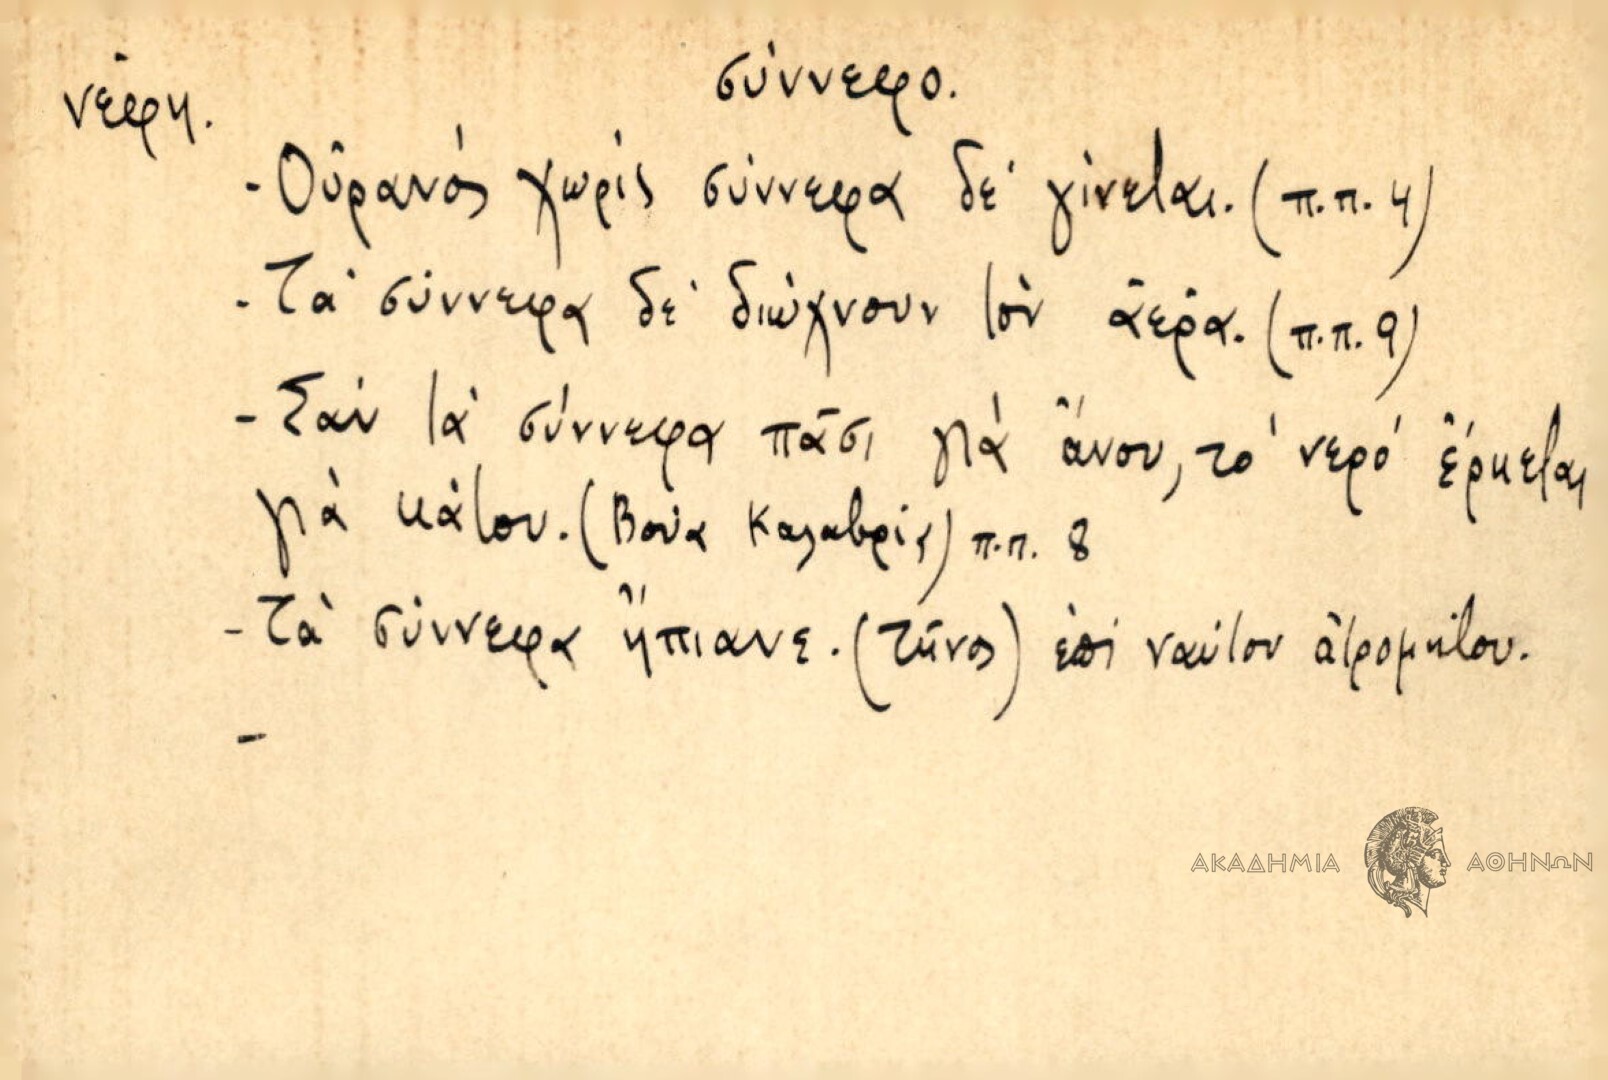 νέφη.
σύννεφο.
- Οὐρανός χωρίς σύννεφα δέ γίνεται. (π.π. 4)
- Τά σύννεφα δέ διώχνουν τόν ἀέρα. (π.π. 9)
- Σάν τά σύννεφα πᾶσι γιά ἄνου, τό νερό ἔρκεται
γιά κάτου. (Βούα Καλαβρίς) π.π. 8
- Τά σύννεφα ἤπιανε. (Τῆνος) ἐπί ναύτου ἀτρομήτου.
-
ΑΚΑΔΗΜΙΑ ΑΘΗΝΩΝ